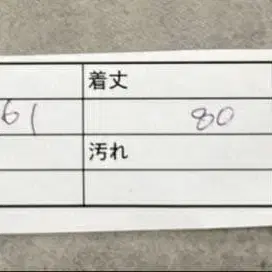 着丈
61 80
汚れ